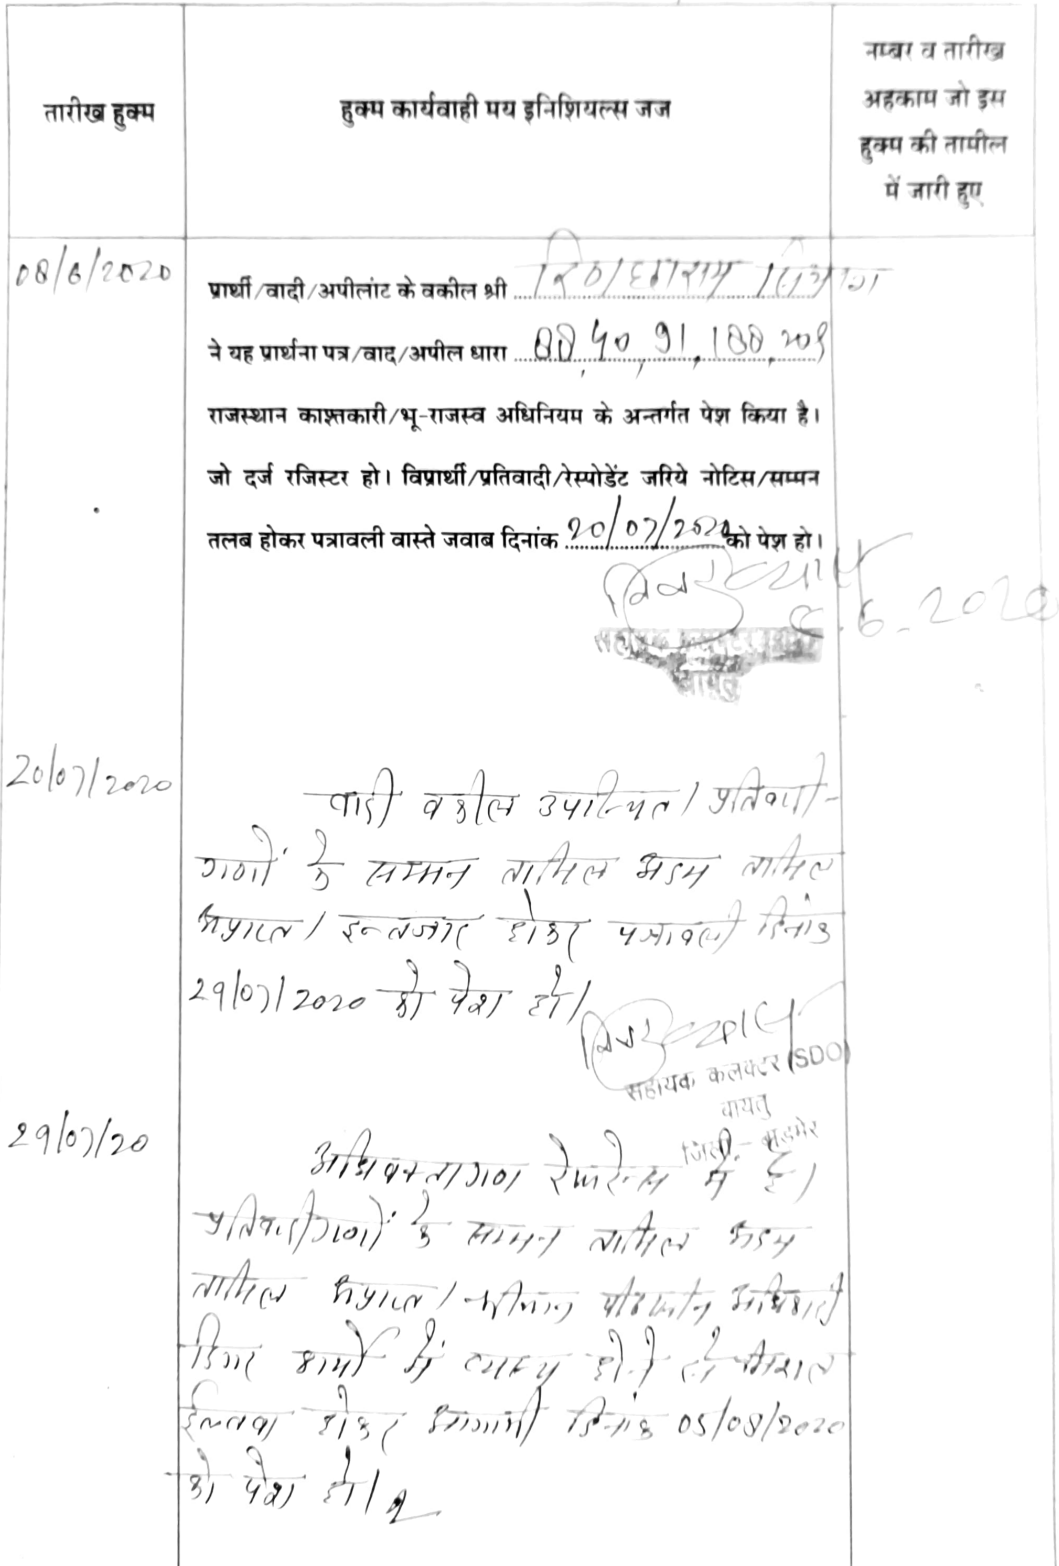 तारीख हुक्म
हुक्म कार्यवाही मय इनिशियल्स जज
नम्बर व तारीख
अहकाम जो इस
हुक्म की तामील
में जारी हुए
08/6/2020
प्रार्थी/वादी/अपीलांट के वकील श्री
ने यह प्रार्थना पत्र/वाद/अपील धारा 88, 40, 91, 188, 209
राजस्थान काश्तकारी/भू-राजस्व अधिनियम के अन्तर्गत पेश किया है।
जो दर्ज रजिस्टर हो। विप्रार्थी/प्रतिवादी/रेस्पोडेंट जरिये नोटिस/सम्मन
तलब होकर पत्रावली वास्ते जवाब दिनांक 20/07/2020 को पेश हो।
8.6.2020
बायतु
20/07/2020
वादी वकील उपस्थित। प्रतिवादी-
गणों के सम्मन तामिल अदम तामिल
अप्राप्त। इन्तजार होकर पत्रावली दिनांक
29/07/2020 को पेश हो।
सहायक कलक्टर (SDO)
बायतु
जिला - बाड़मेर
29/07/20
अधिवक्तागण रेफरेन्स में है।
प्रतिवादीगणों के सम्मन तामिल अदम
तामिल अप्राप्त। श्रीमान पीठासीन अधिकारी
कार्यो में व्यस्त होने से मिशल
होकर आगामी दिनांक 05/08/2020
को पेश हो।